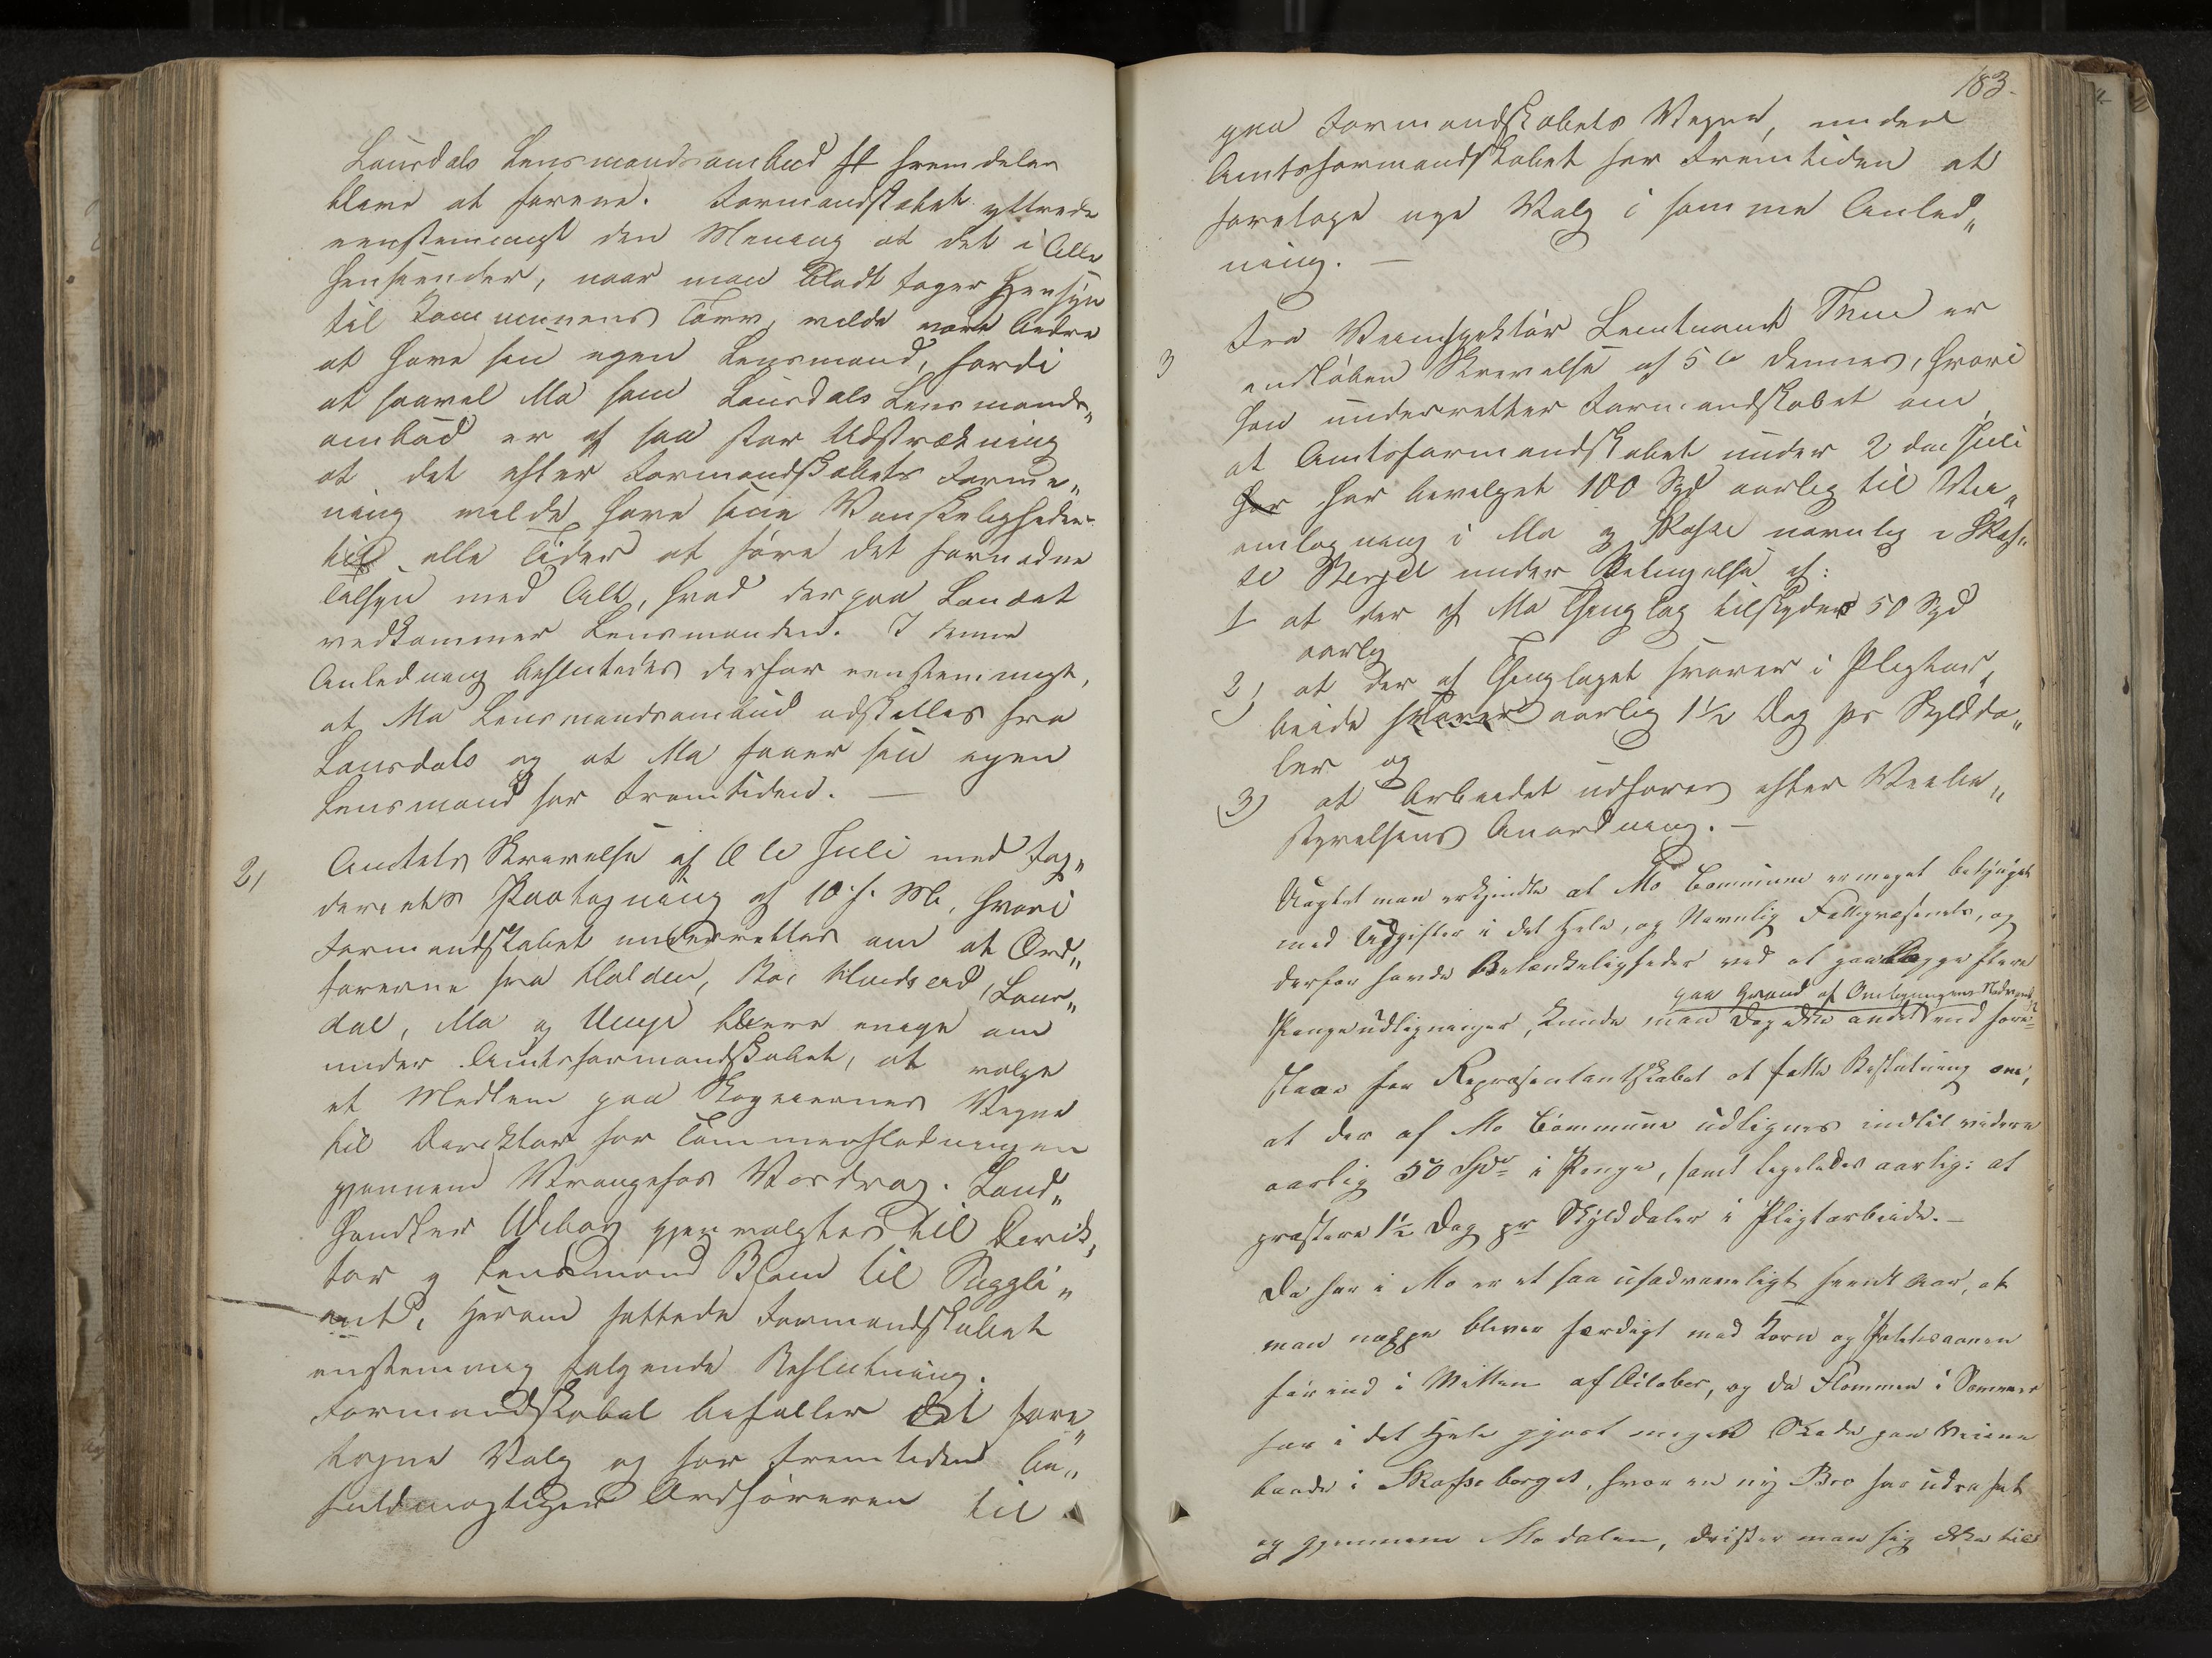 Laurdals Lensmandsombud ff fremdeles
blive at forene. Formandskabet yttrede
eenstemmigt den Mening at det i Alle
Henseender, naar man blodt tager Hensyn
til Kommunens Tarv, vilde være bedre
at have sin egen Lensmand, fordi
at saavel Mo som Laurdals Lensmands„
ombud er af saa stor Udstrækning
at det efter Formandskabets Forme„
ning vilde have sine Vanskeligheder
til alle Tider at føre det fornødne
Tilsyn med Alt, hvad der paa Landet
vedkommer Lensmanden. I denne
Anledning besluttedes derfor eenstemmigt,
at Mo Lensmandsombud adskilles fra
Laurdals og at Mo faaer sin egen
Lensmand for Fremtiden. —
2, Amtets Skrivelse af 6te Juli med Fog„
deriets Paategning af 10 f. M., hvori
Formandskabet underrettes om at Ord„
førerne fra Holden, Bø, Hvidseid, Laur„
dal, Mo og Vinje blive enige om
under Amtsformandskabet, at vælge
et Medlem paa Skogeiernes Vegne
til Direktør for Tømmerflødningen
gjennem Vrangefos Vasdrag. Land„
handler Wiborg gjenvalgtes til Direk„
tør og Lensmand Blom til Suppli„
ant, Herom fattede Formandskabet
enstemmig følgende Beslutning.
Formandskabet befalder det fore„
tagne Valg og for Fremtiden be„
fuldmægtiger Ordføreren til
183.
paa Formandskabets Vegne, under
Amtsformandskabet for Fremtiden at
foretage nye Valg i samme Anled„
ning. —
3 Fra Veiinspektør Leutnant er
indløben Skrivelse af 5te dennes, hvori
han underretter Formandskabet om,
at Amtsformandskabet under 2den Juli
har har bevilget 100 Spd aarlig til Vei„
omlægning i Mo og Skafse navnlig i Skaf„
se Berget under Betingelse af:
1 at der af Mo Thinglag tilskydes 50 Spd
aarlig
2) at der af Thinglaget svarer i Pligtar„
beide svarer aarlig 1½ Dag pr Skyldda„
ler og
3) at Arbeidet udføres efter Veibe„
styrelsens Anordning. —
Uagtet man erkjendte at Mo Commune er meget betynget
med Udgifter i det Hele, og Navnlig Fattigvæsenets, og
derfor havde Betænkeligheder ved at paalægge flere
paa Grund af Omlægningens Nødvendighed
Pengeudligninger, kunde man dog ikke andet end fore-
slaae for Repræsentantskabet at fatte Beslutning om,
at der af Mo Commune udlignes indtil videre
aarlig 50 Spd i Penge, samt ligeledes aarlig: at
præstere 1½ Dag pr Skylddaler i Pligtarbeide. —
Da her i Mo er et saa usædvaneligt seent Aar, at
man neppe bliver færdigt med Korn og Potetesaanen
før ind i Mitten af October, og da Flommen i Sommer
har i det Hele gjort meget Skade paa Veiene
baade i Skafseberget, hvor en ny Bro har udraset
og gjennem Modalen, drister man sig ikke til